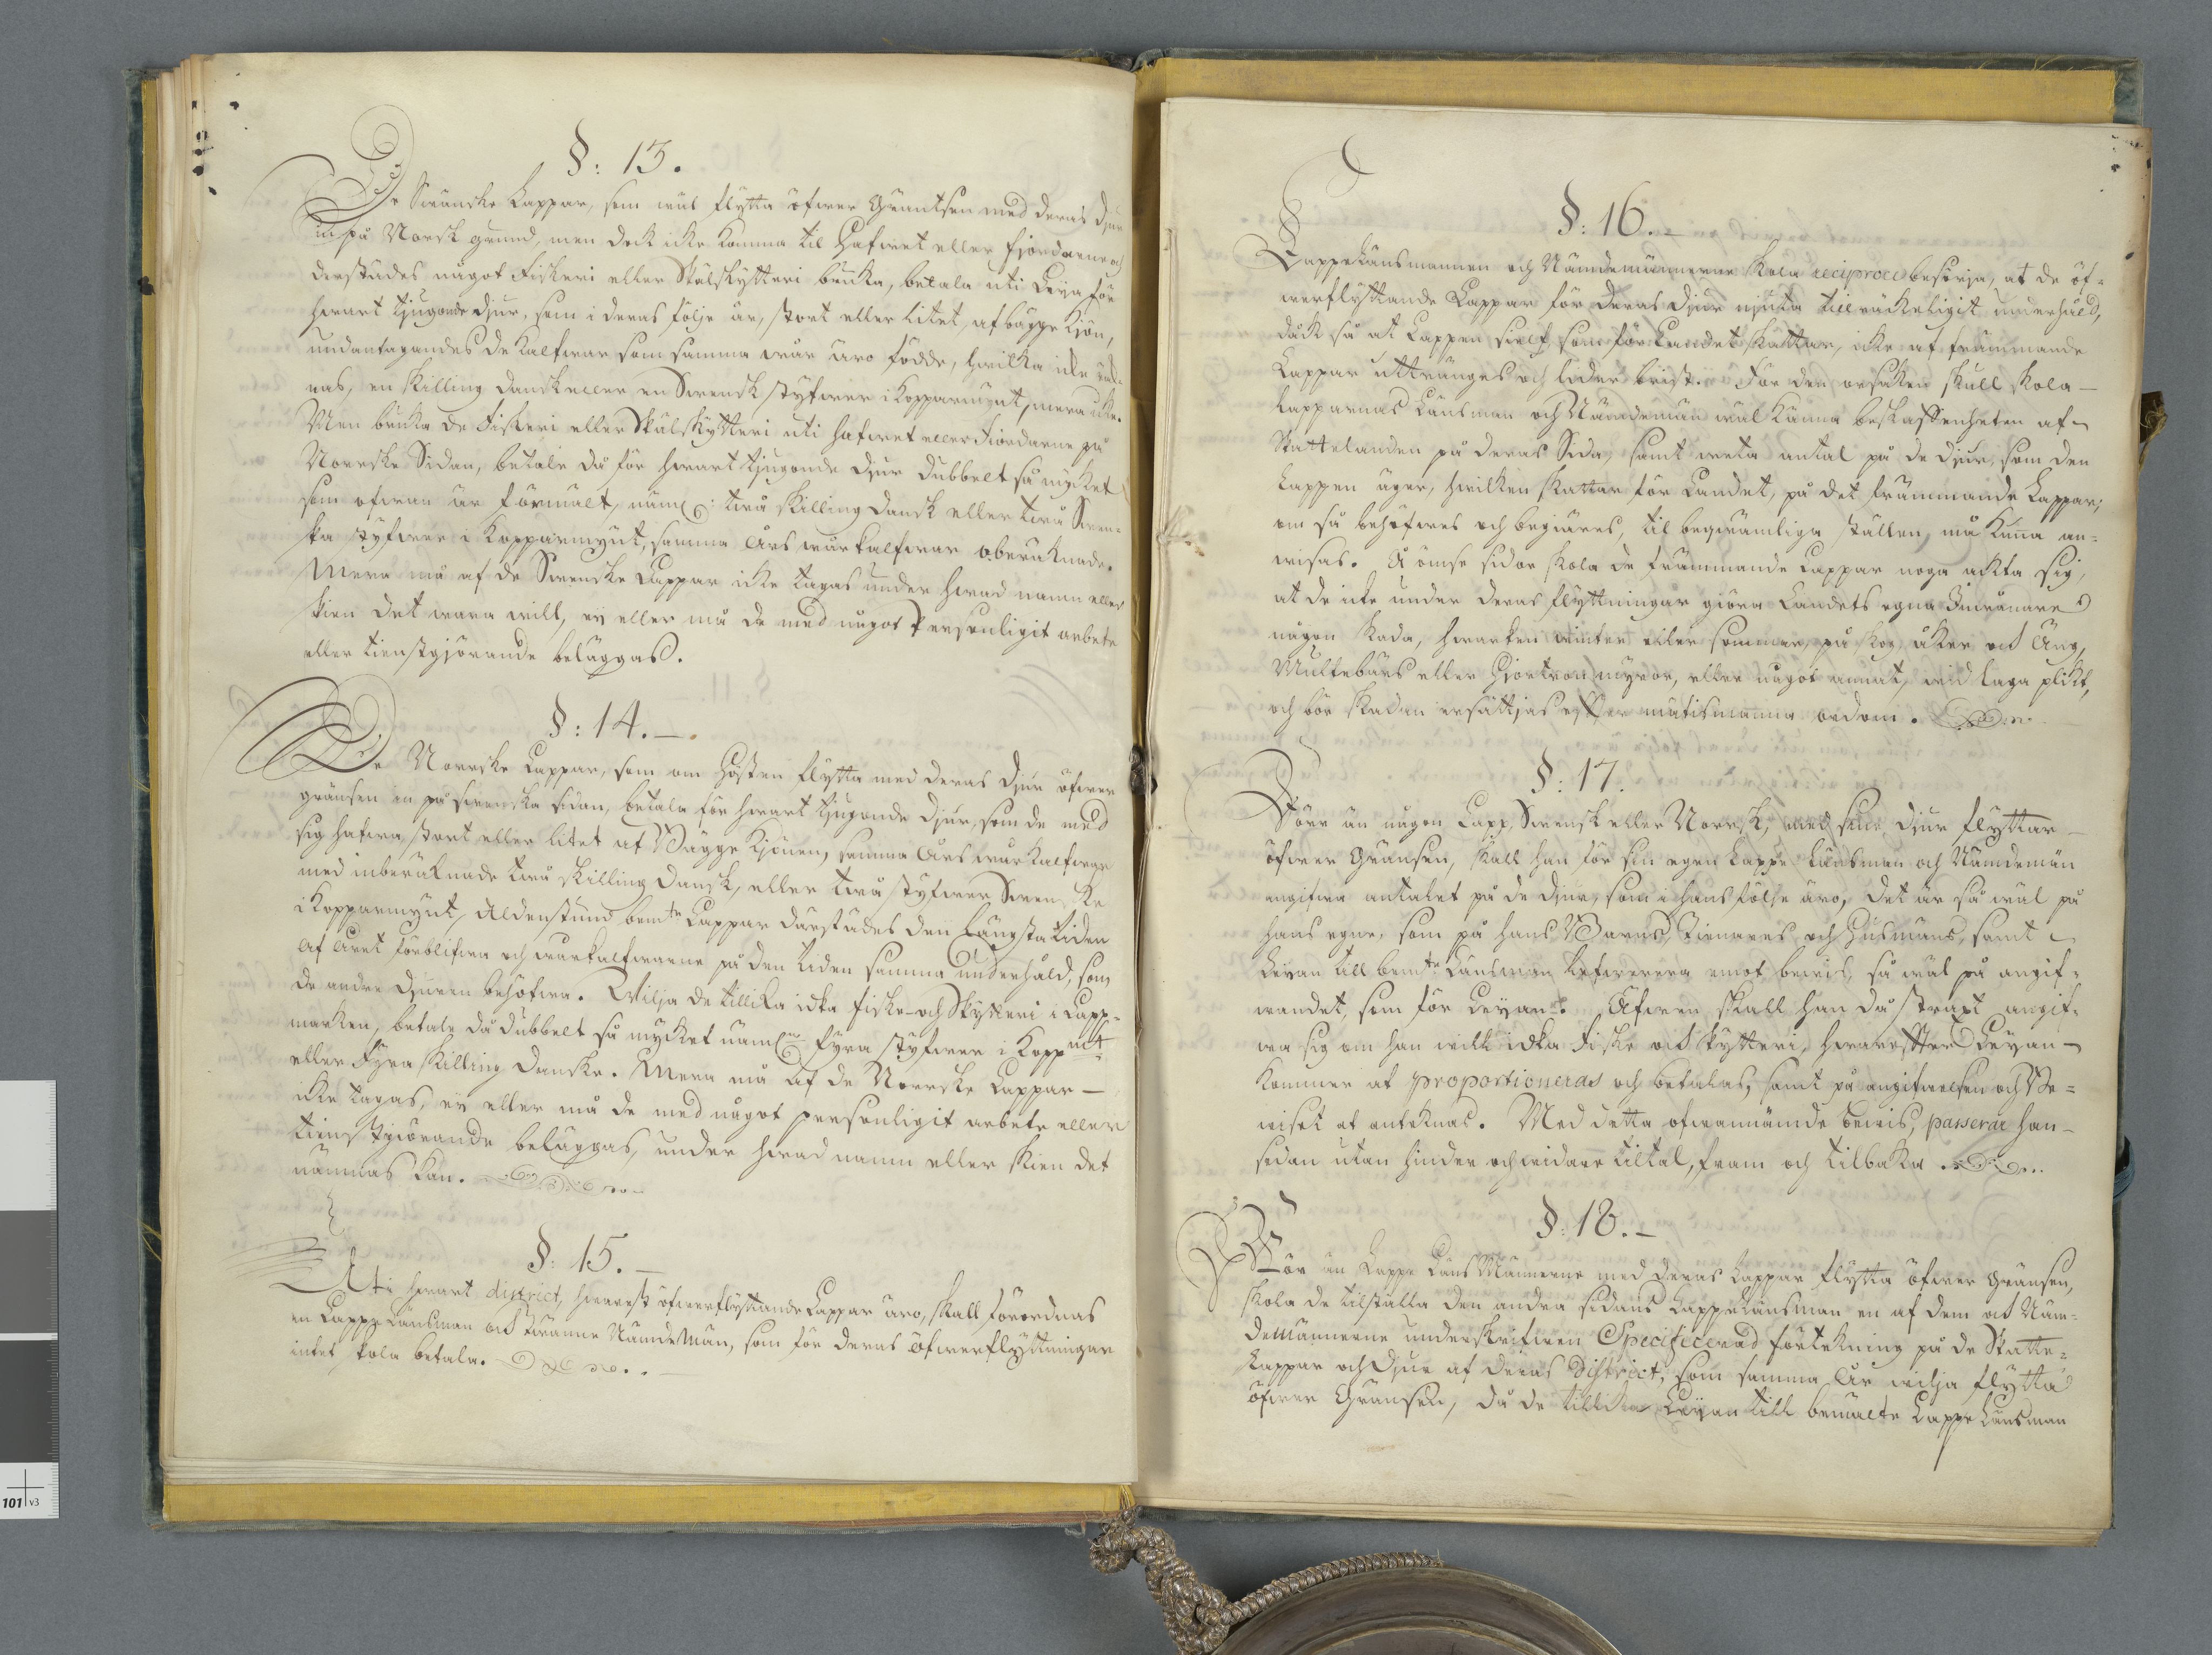 §: 13.
De Swänske Lappar, som wäl flytta öfwer Gräntsen med deras Djur
in på Norsk grund, men dock icke komma til Hafwet eller Fjordarne och
derstädes något Fiskeri eller Skälskytteri bruka, betala uti Leya för
hwart tjugonde djur, som i deras följe är, stort eller litet, af bägge Kjön,
undantagandes de Kalfwar som samma wår äro födde, hwilka icke räk-
nas, en skilling dansk eller en Swensk styfwer i Kopparmynt, mera icke.
Men bruka de Fiskeri eller Skälskytteri uti hafwet eller Fiordarne på
Norrske Sidan, betale då för hwart tjugonde djur dubbelt så mycket
som ofwan är förmält, näml: twå skilling Dansk eller twå Swen-
ska styfwer i Kopparmynt, samma Års wårkalfwar oberäknade.
Mera må af de Swenske Lappar icke tagas under hwad namn eller
skien det wara will, ey eller må de med något Personligit arbete
eller tienstgjörande beläggas.
§: 14.
De Norrske Lappar, som om Hösten flytta med deras djur öfwer
gränsen in på Swenska sidan, betala för hwart tjugonde djur, som de med
sig hafwa, stort eller litet af Bägge Kjönen, samma Års wårkalfwar
med inberäknade twå skilling Dansk, eller twå styfwer Swenske
i Kopparmynt, Aldenstund bemte Lappar därstädes den längsta tiden
af Året förblifwa och wårkalfwarne på den tiden samma underhåld, som
de andre djuren behöfwa. Wilja de tillika idka Fiske- och Skytteri i Lapp-
marken, betale då dubbelt så mycket näml. fyra styfwer i Kopp mt
eller Fyra skilling Danske. Mera må af de Norrske Lappar
icke tagas, ey eller må de med något personligit arbete eller
tienstgiörande beläggas, under hwad namn eller skien det
nämnas kan.
§: 15.
Uti hwart district, hwarest öfwerflyttande Lappar äro, skall förordnas
en Lappe Länsman och twänne Nämdemän, som för deras öfwerflyttningar
intet skola betala.
§: 16.
Lappelänsmannen och Nämdemännerne skola reciproce besörja, at de öf-
werflyttande Lappar för deras djur njuta tillräckeligit underhåld,
dåck så at Lappen sielf som för Landet skattar, icke af främmande
Lappar uttränges och lider brist. För den orsaken skull skola
Lapparnas Länsman och Nämdemän wäl känna beskaffenheten af
Skattelanden på deras Sida, samt weta antal på de djur, som den
Lappen äger, hwilken skattar för Landet, på det främmande Lappar,
om så behöfwes och begiäres, til beqwämliga ställen, må kunna an-
wisas. Å ömse sidor skola de främmande Lappar noga ackta sig,
at de icke under deras flyttningar giöra Landets egna Inwånare
någon skada, hwarken winter eller sommar, på skog, åker och Äng,
Multebärs eller Hjortron myror, eller något annat, wid laga plikt,
och bör skadan ersättjas efter mätismanna ordom.
§: 17.
Förr än någon Lapp, Swensk eller Norrsk, med sine djur flyttar
öfwer Gränsen, skall han för sin egen Lappe Länsman och Nämdemän
angifwa antalet på de djur, som i hans följe äro, det är så wäl på
hans egne, som på hans Barns, Tienares och Husmäns, samt
Leyan till bemte Länsman lefwerera emot bewis, så wäl på angif-
wandet, som för Leyan. Äfwen skall han då straxt angif-
wa sig om han will idka Fiske och skytteri, hwarefter Leyan
kommer at proportioneras och betalas, samt på angifwelsen och Be-
wiset at anteknas. Med detta ofwannämde bewis, passerar han
sedan utan hinder och widare tiltal, fram och tilbaka.
§: 18.
Förr än Lappe Läns Männerne med deras Lappar flytta öfwer Gränsen,
skola de tilställa den andra sidans Lappelänsman en af dem och Näm-
demännerne underskrifwen Specificerad förtekning på de Skatte-
Lappar och djur af deras District, som samma År wilja flytta
öfwer Gränsen, då de tillika Leyan till bemälte Lappe Länsman